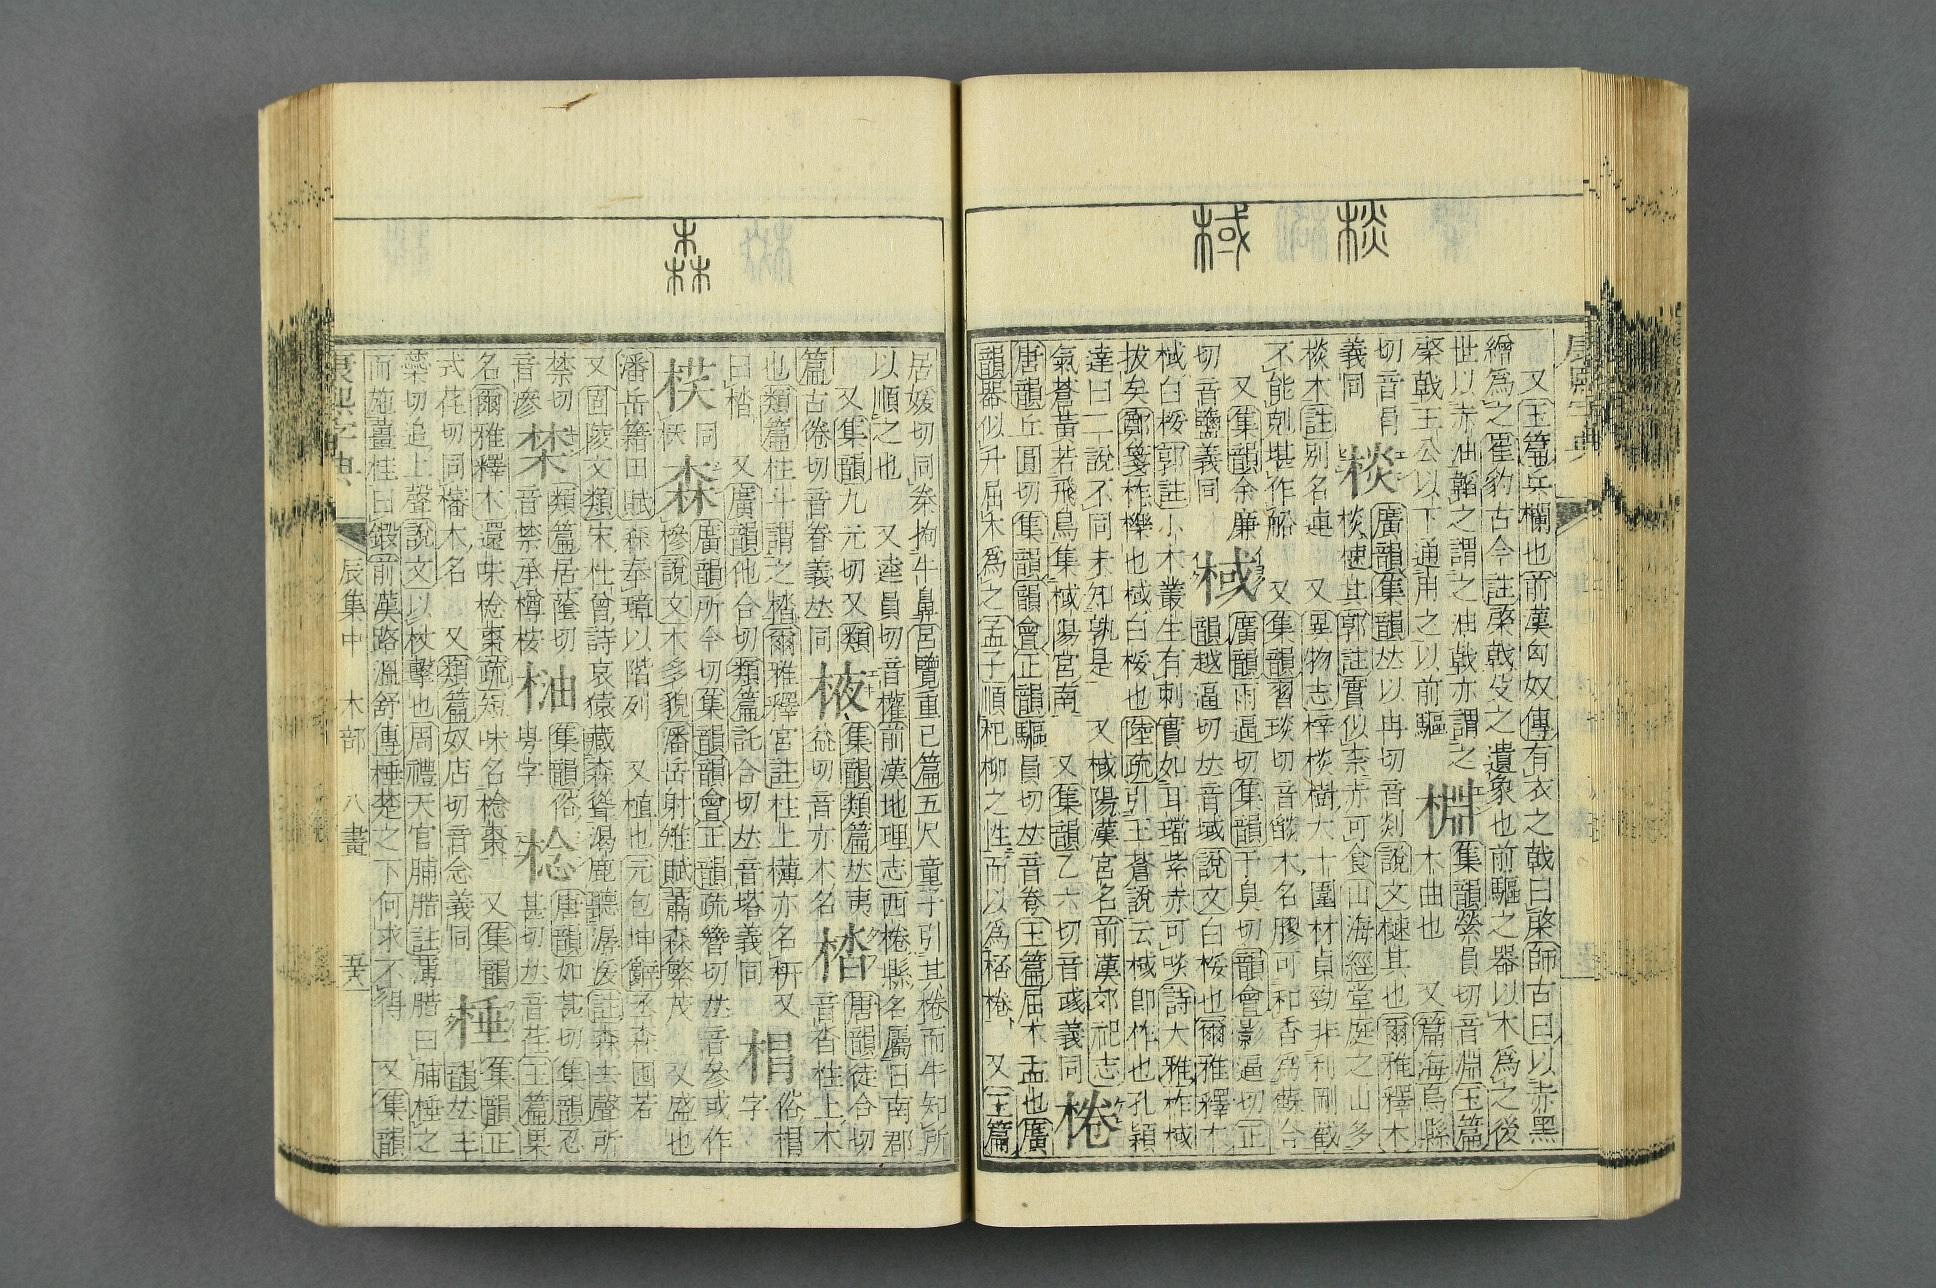 棪
棫
又玉篇兵欄也前漢匈奴傳有衣之戟曰棨師古曰以赤黑
繒爲之崔豹古今註棨戟殳之遺象也前驅之器以木爲之後
世以赤油韜之謂之油戟亦謂之
棨戟王公以下通用之以前驅
棩
集韻縈員切音淵玉篇
木曲也 又篇海烏縣
切音肙
義同
棪
廣韻集韻𠀤以冉切音剡說文樕其也爾雅釋木
棪樕其郭註實似柰赤可食山海經堂庭之山多
棪木註別名連 又異物志梓棪樹大十圍材貞勁非利剛截
不能剋堪作船 又集韻習琰切音 木名膠可和香爲蘇合
又集韻余廉
切音鹽義同
棫
廣韻雨逼切集韻于臭切韻會影逼切正
韻越逼切𠀤音域說文白桵也爾雅釋木
棫白桵郭註小木叢生有刺實如耳璫紫赤可啖詩大雅柞棫
拔矣鄭箋柞櫟也棫白桵也陸疏引王蒼說云棫卽柞也孔穎
達曰二說不同未知孰是 又棫陽漢宮名前漢郊祀志
氣蒼黃若飛鳥集棫陽宮南 又集韻乙六切音彧義同
棬
唐韻丘圓切集韻韻會正韻驅員切𠀤音弮玉篇屈木盂也廣
韻器似升屈木爲之孟子順杞柳之性而以爲桮棬 又玉篇
森
居媛切同桊拘牛鼻呂覽重已篇五尺童子引其棬而牛知所
以順之也 又逵員切音權前漢地理志西棬縣名屬日南郡
又集韻九元切又類
篇古倦切音眷義𠀤同
棭
集韻類篇𠀤夷
益切音亦木名
楷
唐韻徒合切
音沓柱上木
也類篇柱斗謂之楷爾雅釋宮註柱上欂亦名枅又
曰㭼 又廣韻他合切類篇託合切𠀤音塔義同
棤
俗棤
字
棂
同
森
廣韻所今切集韻韻會正韻疏簪切𠀤音參或作
槮說文木多貌潘岳射雉賦蕭森繁茂 又盛也
潘岳籍田賦森奉璋以階列 又植也元包坤辭丕森囤若
又固陵文類宋杜曾詩哀猿藏森聳渴鹿聽潺湲註森去聲所
禁切
音滲
棽
類篇居蔭切
音禁承樽桉
柚
集韻俗
甹字
棯
唐韻如甚切集韻忍
甚切𠀤音荏玉篇果
名爾雅釋木還味棯棗疏短味名棯棗 又集韻式
式荏切同橎木名 又類篇奴店切音念義同
棰
集韻正
韻𠀤主
蘂切追上聲說文以杖擊也周禮天官脯腊註薄腊曰脯棰之
而施薑桂曰鍛前漢路溫舒傳棰楚之下何求不得 又集韻
康熙字典
辰集中 木部 八畫